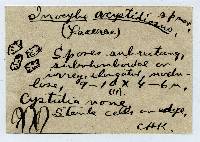 Inocybe acystidiosus sp nov.
(Lacerae)
Spores subrectang,
subrhomboidal or
irreg, elongated, nodu-
lose, 7-10 x 4-6 µ,
Cystidia none
Sterile cells on edge,
CHK.